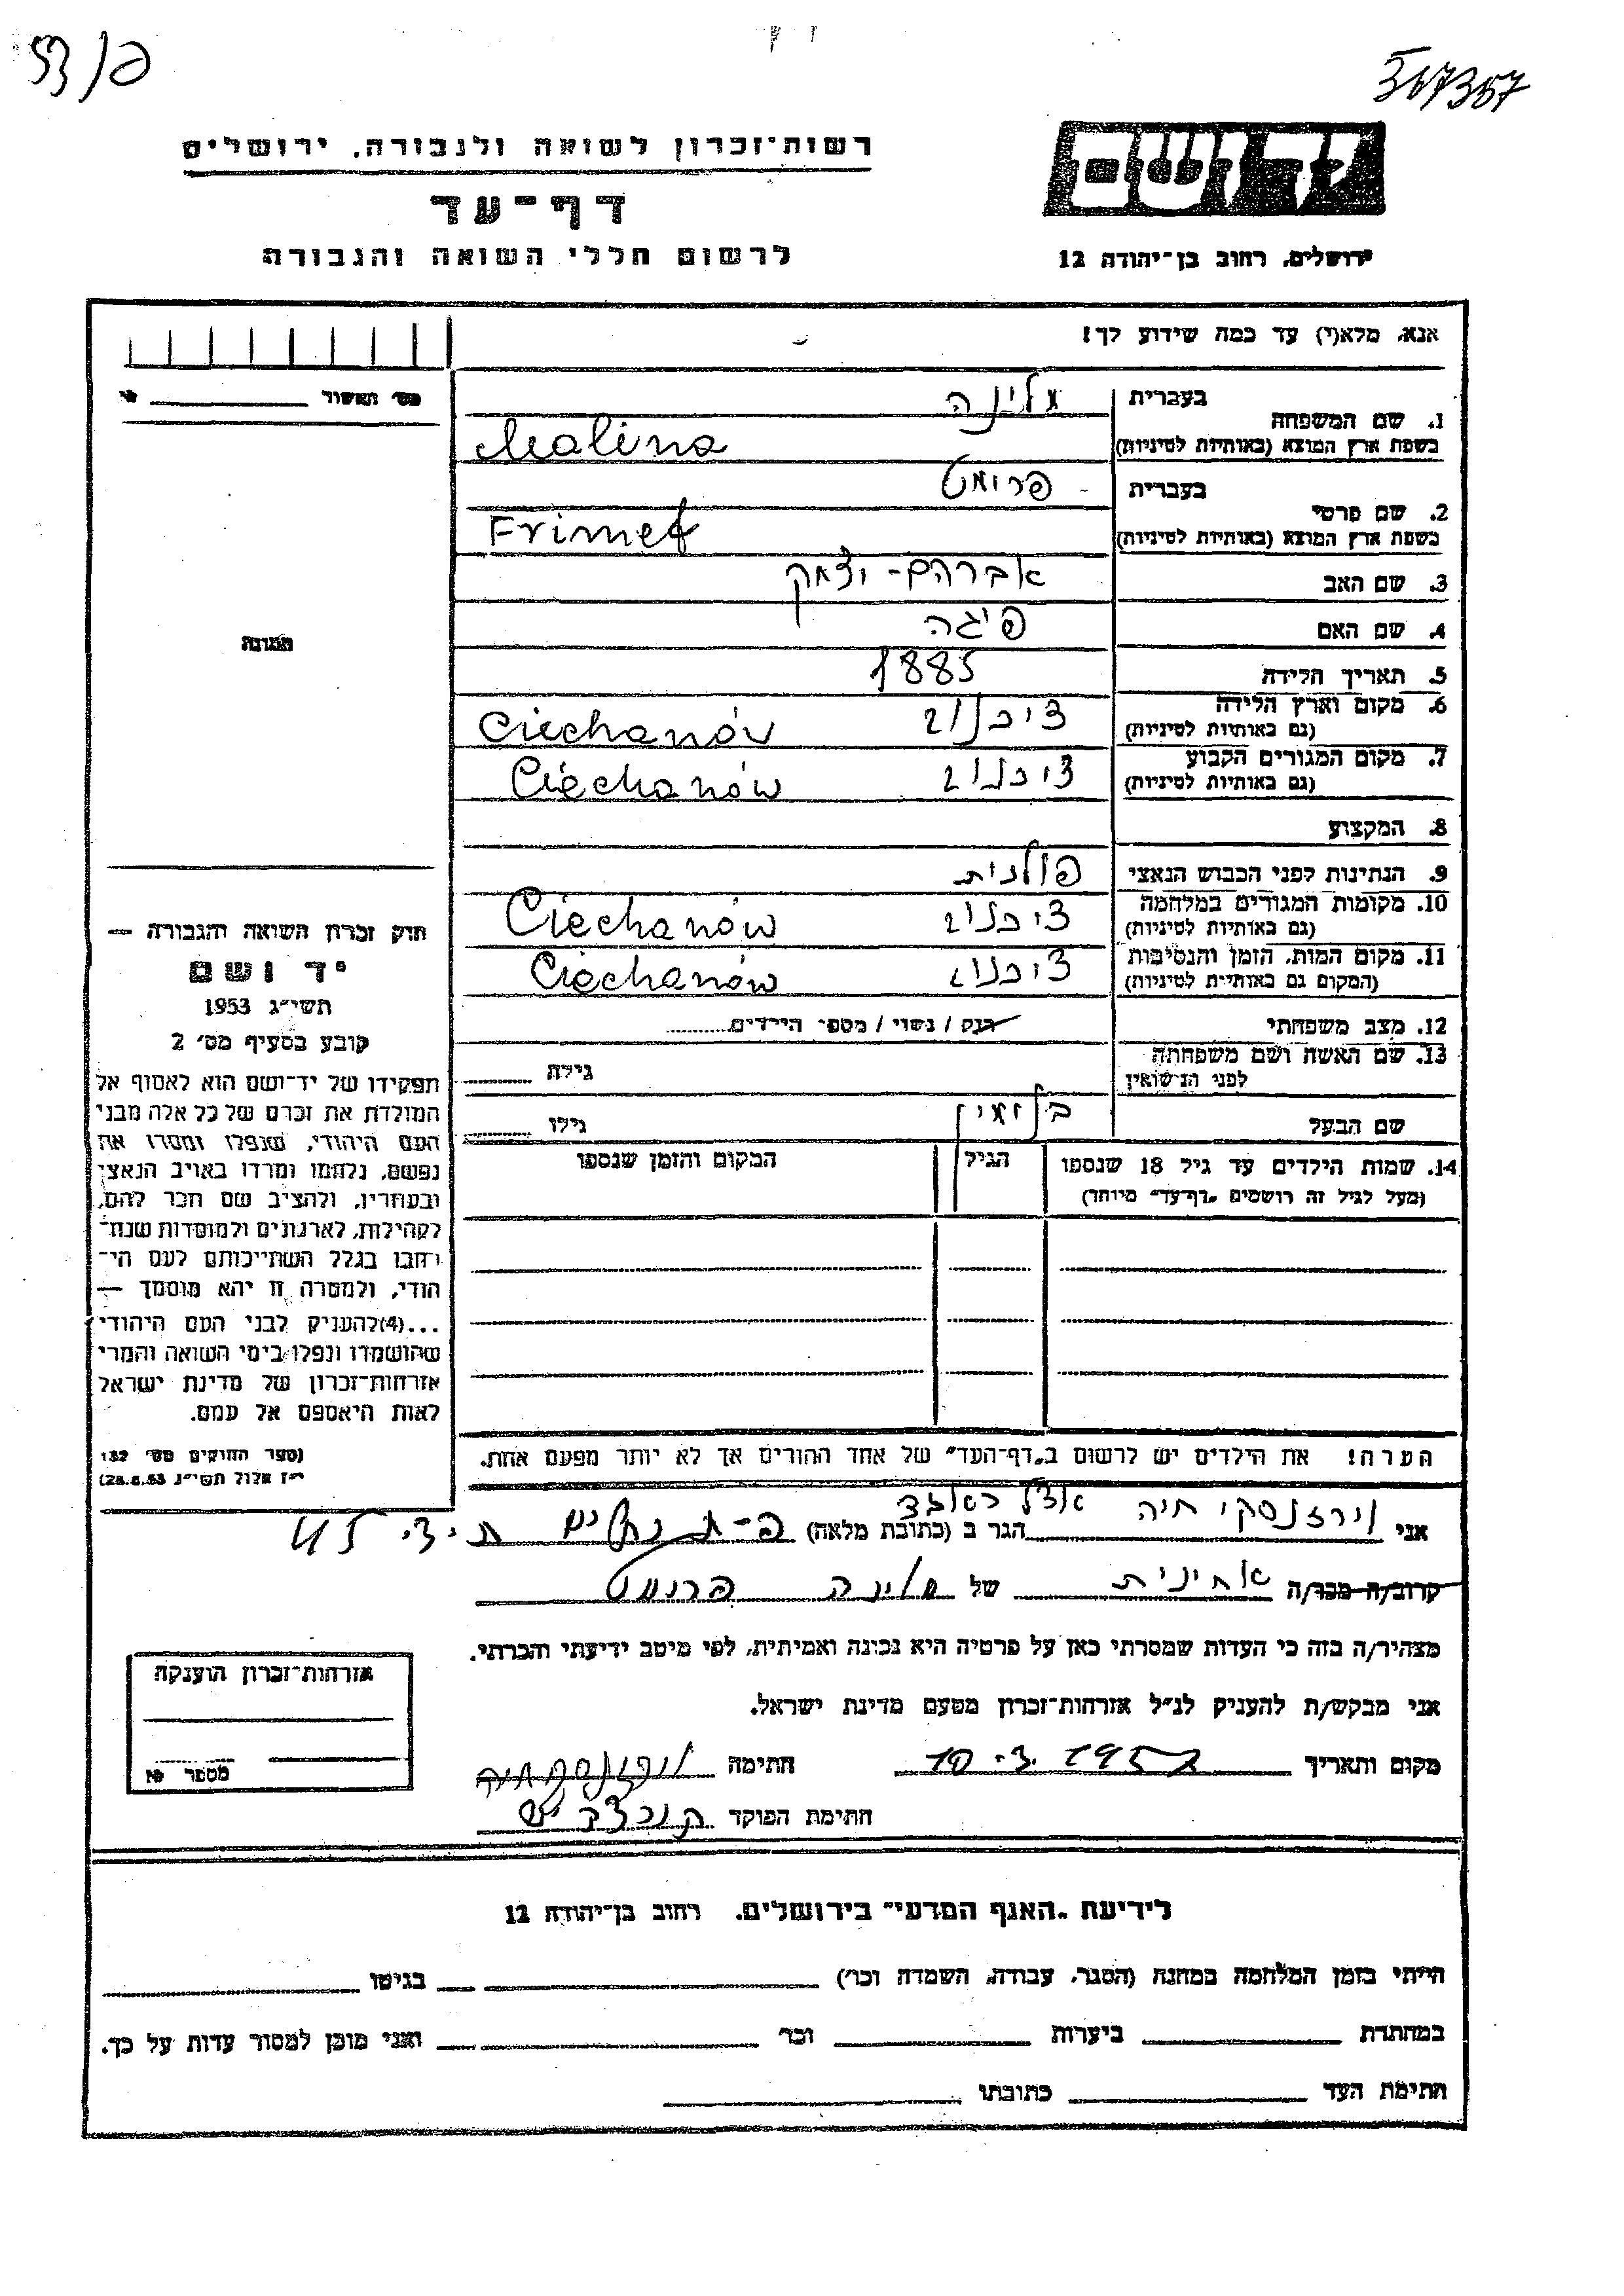 367357
רשות־זכרון לשואה ולגבורה, ירושלים
דף־עד
לרשום חללי השואה והגבורה
ירושלים, רחוב בן־יהודה 12
אנא, מלא(י) עד כמה שידוע לך!
1. שם המשפחה
בעברית מלינה
בשפת ארץ המוצא (באותיות לטיניות) Malina
2. שם פרטי
בעברית פרומט
בשפת ארץ המוצא (באותיות לטיניות) Frimet
3. שם האב אברהם - יצחק
4. שם האם פיגה
5. תאריך הלידה 1885
6. מקום וארץ הלידה ציכנוב Ciechanów
(גם באותיות לטיניות)
7. מקום המגורים הקבוע ציכנוב Ciechanów
(גם באותיות לטיניות)
8. המקצוע
9. הנתינות לפני הכבוש הנאצי פולנית
10. מקומות המגורים במלחמה ציכנוב Ciechanów
(גם באותיות לטיניות)
11. מקום המות, הזמן והנסיבות ציכנוב Ciechanów
(המקום גם באותיות לטיניות)
12. מצב משפחתי רוק / נשוי / מספר הילדים
13. שם האשה ושם משפחתה גילה
לפני הנישואין
שם הבעל גילו
14. שמות הילדים עד גיל 18 שנספו הגיל המקום והזמן שנספו
(מעל לגיל זה רושמים „דף־עד” מיוחד)
הערה! את הילדים יש לרשום ב„דף־העד” של אחד ההורים אך לא יותר מפעם אחת.
מס׳ תאשור
תמונה
חוק זכרון השואה והגבורה —
יד ושם
תשי״ג 1953
קובע בסעיף מס׳ 2
תפקידו של יד־ושם הוא לאסוף אל
המולדת את זכרם של כל אלה מבני
העם היהודי, שנפלו ומסרו את
נפשם, נלחמו ומרדו באויב הנאצי
ובעוזריו, ולהציב שם וזכר להם,
לקהילות, לארגונים ולמוסדות שנח־
רבו בגלל השתייכותם לעם הי־
הודי, ולמטרה זו יהא מוסמך —
...(4) להעניק לבני העם היהודי
שהושמדו ונפלו בימי השואה והמרי
אזרחות־זכרון של מדינת ישראל
לאות היאספם אל עמם.
(ספר החוקים מס׳ 132
י״ז אלול תשי״ג 28.8.53)
אני וירזנסקי חיה אצל
הגר ב (כתובת מלאה) ת.ד. 45
קרוב/ה מכר/ה אחינית של מלינה פרומט
מצהיר/ה בזה כי העדות שמסרתי כאן על פרטיה היא נכונה ואמיתית, לפי מיטב ידיעתי והכרתי.
אני מבקש/ת להעניק לנ״ל אזרחות־זכרון מטעם מדינת ישראל.
מקום ותאריך 10.3.1957 חתימה
חתימת הפוקד
אזרחות־זכרון הוענקה
מספר
לידיעת „האגף המדעי” בירושלים. רחוב בן־יהודה 12
הייתי בזמן המלחמה במחנה (הסגר, עבודה, השמדה וכו׳) בגיטו
במחתרת ביערות וכו׳ ואני מוכן למסור עדות על כך.
חתימת העד כתובתו